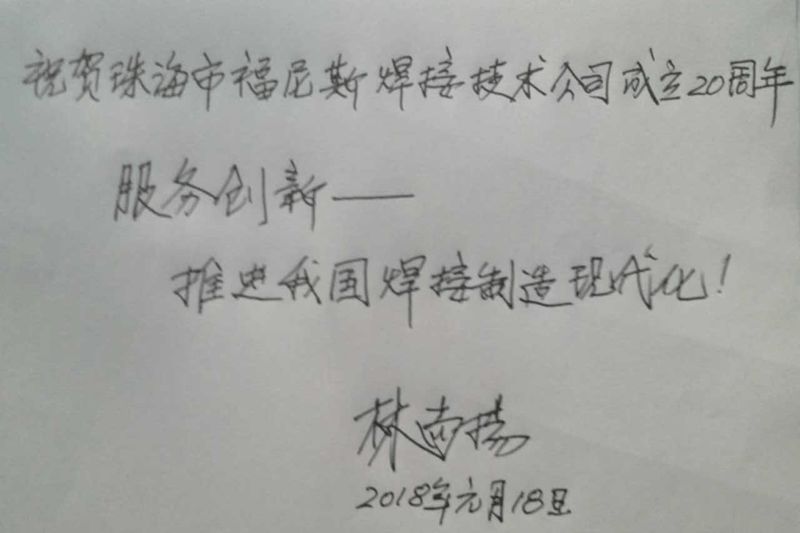 祝贺珠海市福尼斯焊接技术公司成立20周年
服务创新——
推进我国焊接制造现代化！
林尚扬
2018年元月18日